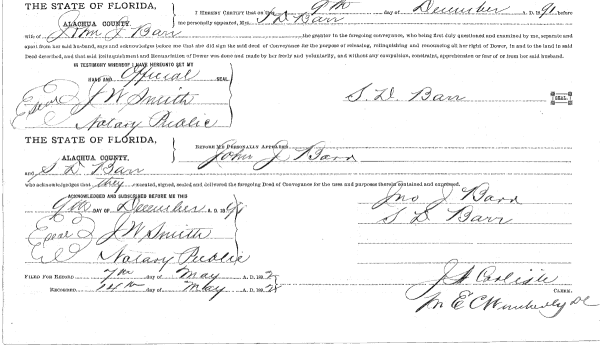 THE STATE OF FLORIDA,
ALACHUA COUNTY.
I HEREBY CERTIFY that on this 9th day of December A. D. 1891 before
me personally appeared, Mrs. S D Barr
wife of John J Barr the grantor in the foregoing conveyance, who being first duly questioned and examined by me, separate and
apart from her said husband, says and acknowledges before me that she did sign the said deed of Conveyance for the purpose of releasing, relinquishing and renouncing all her right of Dower, in and to the land in said
Deed described, and that said Relinquishment and Renunciation of Dower was done and made by her freely and voluntarily, and without any compulsion, constraint, apprehension or fear of or from her said husband.
IN TESTIMONY WHEREOF I HAVE HEREUNTO SET MY
HAND AND Official SEAL
J W Smith
Notary Public
S. D. Barr
SEAL.
THE STATE OF FLORIDA,
ALACHUA COUNTY,
BEFORE ME PERSONALLY APPEARED John J Barr
and S D Barr
who acknowledges that they executed, signed, sealed and delivered the foregoing Deed of Conveyance for the uses and purposes therein contained and expressed.
ACKNOWLEDGED AND SUBSCRIBED BEFORE ME THIS
9th DAY OF December A. D. 1891
J W Smith
Notary Public
Jno J Barr
S D Barr
FILED FOR RECORD 7th day of May A. D. 1892
RECORDED 14th day of May A. D. 1892
J A Carlisle
CLERK.